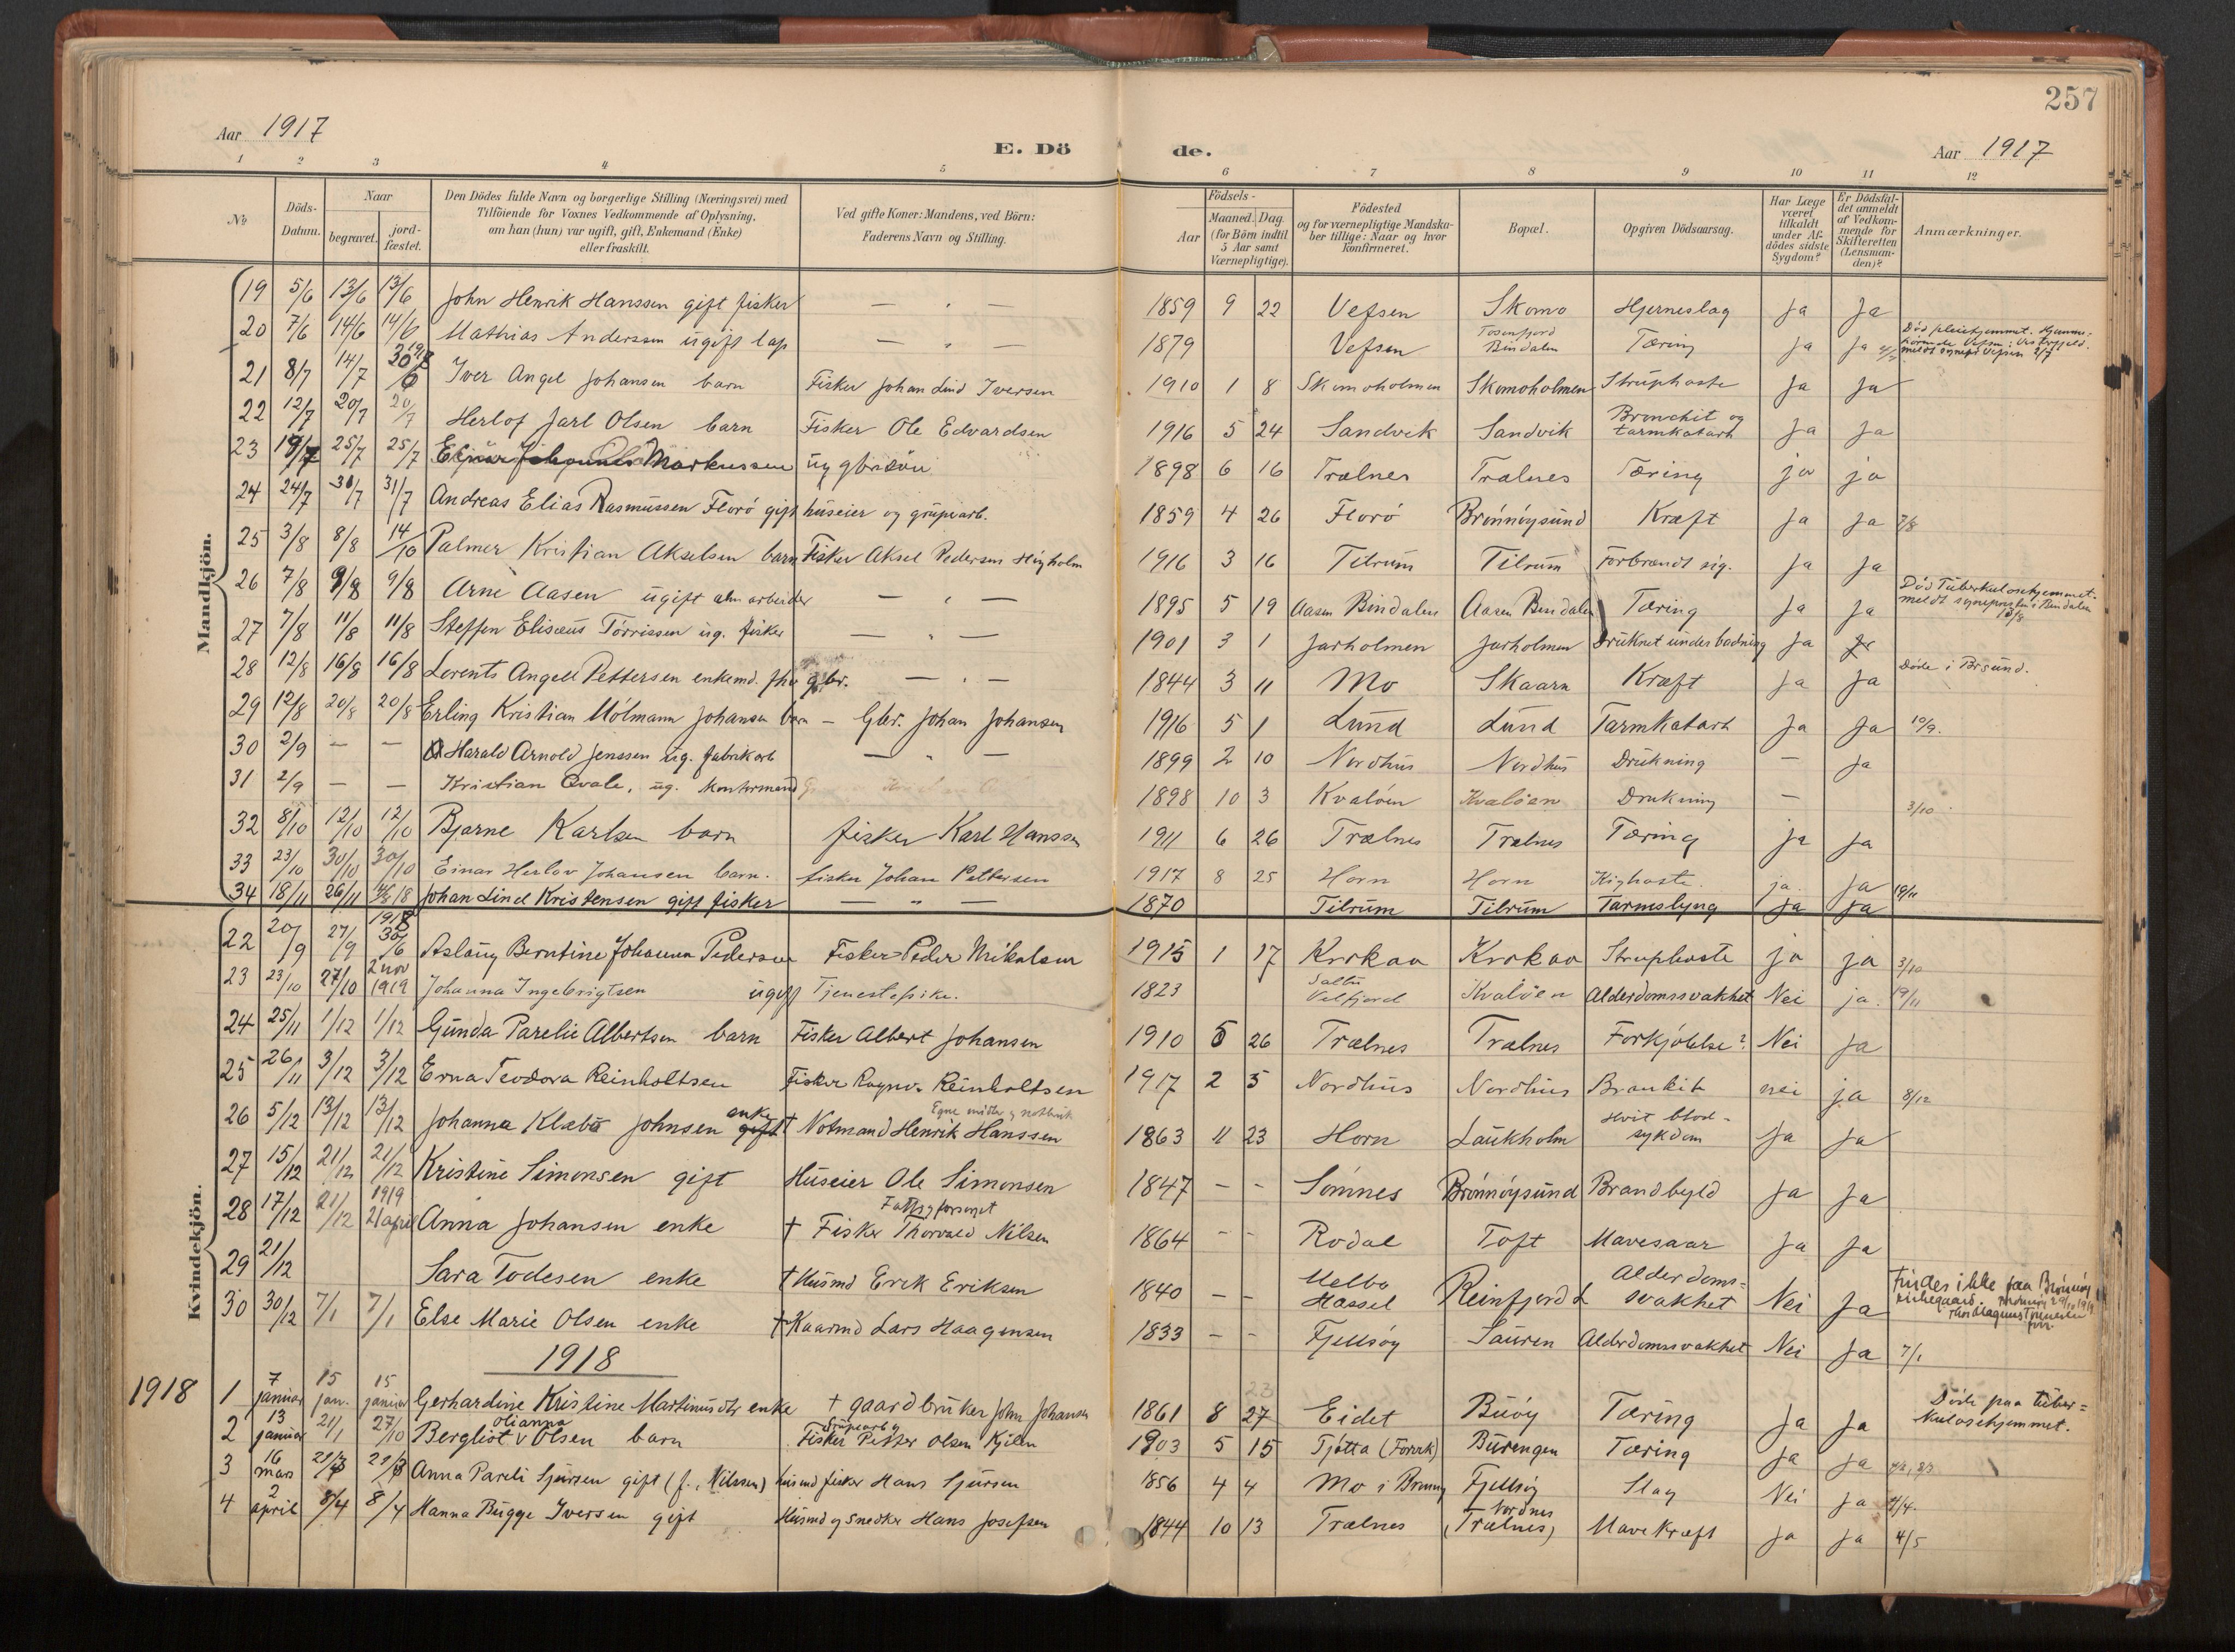 257
Aar 1917
E. Dö de.
Aar 1917
1 2 3 4 5 6 7 8 9 10 11 12
No
Döds-Datum.
Naar
begravet.
jordfæstet.
Den Dödes fulde Navn og borgerlige Stilling (Næringsvei) med Tilföiende for Voxnes Vedkommende af Oplysning, om han (hun) var ugift, gift, Enkemand (Enke) eller fraskilt.
Ved gifte Koner: Mandens, ved Börn: Faderens Navn og Stilling.
Födsels-
Aar
Maaned. Dag.
(for Börn indtil 5 Aar samt Værnepligtige).
Födested og for værnepligtige Mandskaber tillige: Naar og hvor konfirmeret.
Bopæl.
Opgiven Dödsaarsag.
Har Læge været tilkaldt under Afdödes sidste Sygdom?
Er Dödsfaldet anmeldt af Vedkommende for Skifteretten (Lensmanden)?
Anmærkninger.
Mandkjön.
19 5/6 13/6 13/6 John Henrik Hanssen gift fisker — " — 1859 9 22 Vefsen Skomo Hjerneslag Ja Ja
20 7/6 14/6 14/6 Mathias Anderssen ugift lap — " — 1879 Vefsen Tosenfjord Bindalen Tæring Ja Ja
21 8/7 14/7 Iver Angel Johansen barn Fisker Johan Lind Iversen 1910 1 8 Skomoholmen Skomoholmen Struphoste Ja Ja
22 12/7 20/7 20/7 Herlof Jarl Olsen barn Fisker Ole Edvardsen 1916 5 24 Sandvik Sandvik Bronchit og tarmkatarh Ja Ja
23 19/7 25/7 25/7 Markussen ug gbrsön 1898 6 16 Trælnes Trælnes Tæring ja ja
24 24/7 31/7 31/7 Andreas Elias Rasmussen Florö gift huseier og grubearb. 1859 4 26 Florö Brönnöysund Kræft Ja Ja 7/8
25 3/8 8/8 14/10 Palmer Kristian Akselsen barn Fisker Aksel Pedersen 1916 3 16 Tilrum Tilrum Forbrændt sig. Ja Ja
26 7/8 9/8 9/8 Arne Aasen ugift alm arbeider — " — 1895 5 19 Aasen Bindalen Aasen Bindalen Tæring Ja Ja Död Tuberkulosehjemmet.
27 7/8 11/8 11/8 Steffen Elisæus Törrissen ug. fisker — " — 1901 3 1 Jarholmen Jarholmen Druknet under badning Ja
28 12/8 16/8 16/8 Lorents Angell Pettersen enkemd. fhv gbr. — " — 1844 3 11 Mo Skaarn Kræft Ja Ja Döde i Brsund.
29 12/8 20/8 20/8 Erling Kristian Mölmann Johansen barn — Gbr. Johan Johansen 1916 5 1 Lund Lund Tarmkatarh Ja Ja 10/9.
30 2/9 — — Harald Arnold Jenssen ug. fabrikarb — " — 1899 2 10 Nordhus Nordhus Drukning — Ja
31 2/9 — — Kristian Qvale, ug. kontormand 1898 10 3 Kvalöen Kvalöen Drukning — 3/10
32 8/10 12/10 12/10 Bjarne Karlsen barn fisker Karl Hanssen 1911 6 26 Trælnes Trælnes Tæring Ja Ja
33 23/10 30/10 30/10 Einar Herlov Johansen barn. fisker Johan Pettersen 1917 8 25 Horn Horn Kighoste. ja. Ja 19/11
34 18/11 26/11 Johan Lind Kristensen gift fisker — " — 1870 Tilrum Tilrum Tarmslyng Ja Ja
Kvindekjön.
22 20/9 27/9 1918 30/6 Aslaug Berntine Johanna Pedersen Fisker Peder Nikolaisen 1915 1 17 Krokaa Krokaa Struphoste ja ja 3/10
23 23/10 27/10 2 nov 1919 Johanna Ingebrigtsen ugift Tjenestepike. 1823 Velfjord Kvalöen Alderdomssvakhet Nei ja. 19/11
24 25/11 1/12 1/12 Gunda Parelie Albertsen barn Fisker Albert Johansen 1910 5 26 Trælnes Trælnes Forkjölelse? Nei Ja
25 26/11 3/12 3/12 Erna Teodora Reinholtsen Fisker Ragnv. Reinholtsen 1917 2 5 Nordhus Nordhus Bronkit nei ja 8/12
26 5/12 13/12 13/12 Johanna Klabö Johnsen enke gift † Notmand Henrik Hanssen 1863 11 23 Horn Laukholm Hvit blodsykdom Ja Ja
27 15/12 21/12 21/12 Kristine Simonsen gift Huseier Ole Simonsen 1847 — — Sömnes Brönnöysund Brandbyld Ja Ja
28 17/12 21/12 1919 21 april Anna Johansen enke † Fisker Thorvald Nilsen Fattigforsörget 1864 — — Rodal Toft Mavesaar Ja Ja
29 21/12 Sara Todesen enke † Husmd Erik Eriksen 1840 — — Melbo Hassel Reinfjord Alderdomssvakhet Nei Ja Findes ikke paa Brönnöy kirkegaard.
30 30/12 7/1 7/1 Else Marie Olsen enke † Kaarmd Lars Haagensen 1833 — — Fjellsöy Sauren Alderdomssvakhet Nei Ja 7/1
1918
1918 1 7 januar 15 jan. 15 januar Gerhardine Kristine Martinusdtr enke † gaardbruker John Johansen 1861 8 27 Eidet Buöy Tæring Ja Ja Döde paa tuberkulosehjemmet.
2 13 januar 21/1 27/10 Bergliot Olianna Olsen barn Fisker Petter Olsen Kjilen 1903 5 15 Tjötta (Forvik) Burengen Tæring Ja Ja
3 16 mars Anna Pareli Sjursen gift (f. Nilssen) husmd fisker Hans Sjursen 1856 4 4 Mo i Brönnöy Fjellsöy Slag Nei Ja 4/4.
4 2 april 8/4 8/4 Hanna Bugge Iversen gift Husmd og Snedker Hans Josefsen 1844 10 13 Trælnes Nordnes (Trælnes) Mavekræft Ja Ja 4/5